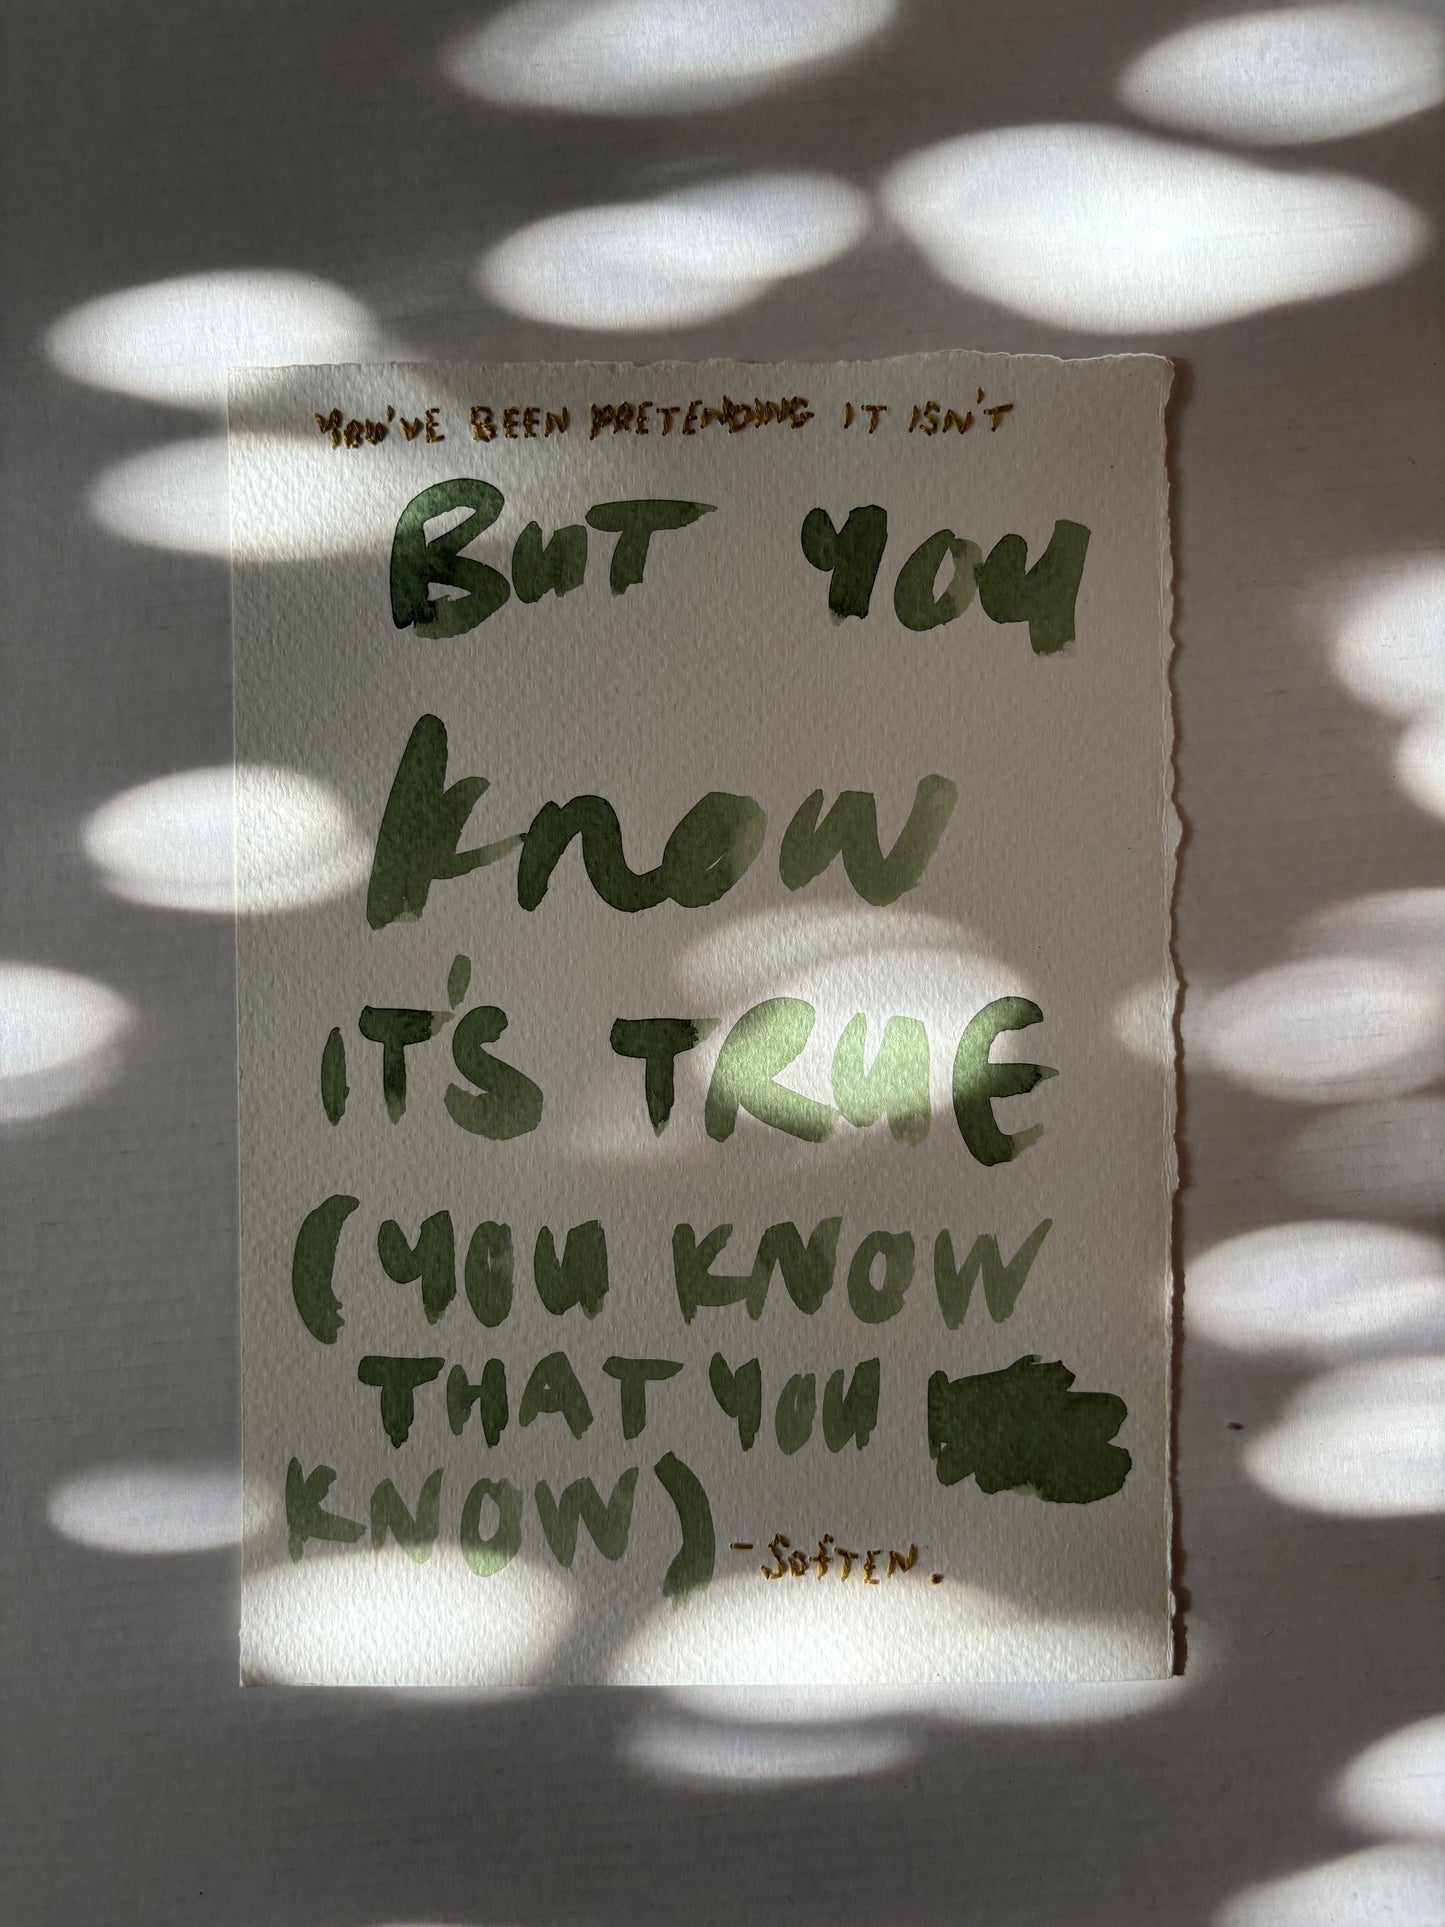 YOU'VE BEEN PRETENDING IT ISN'T
BUT YOU
know
IT'S TRUE
(YOU KNOW
THAT YOU
KNOW)
- SOfTEN.